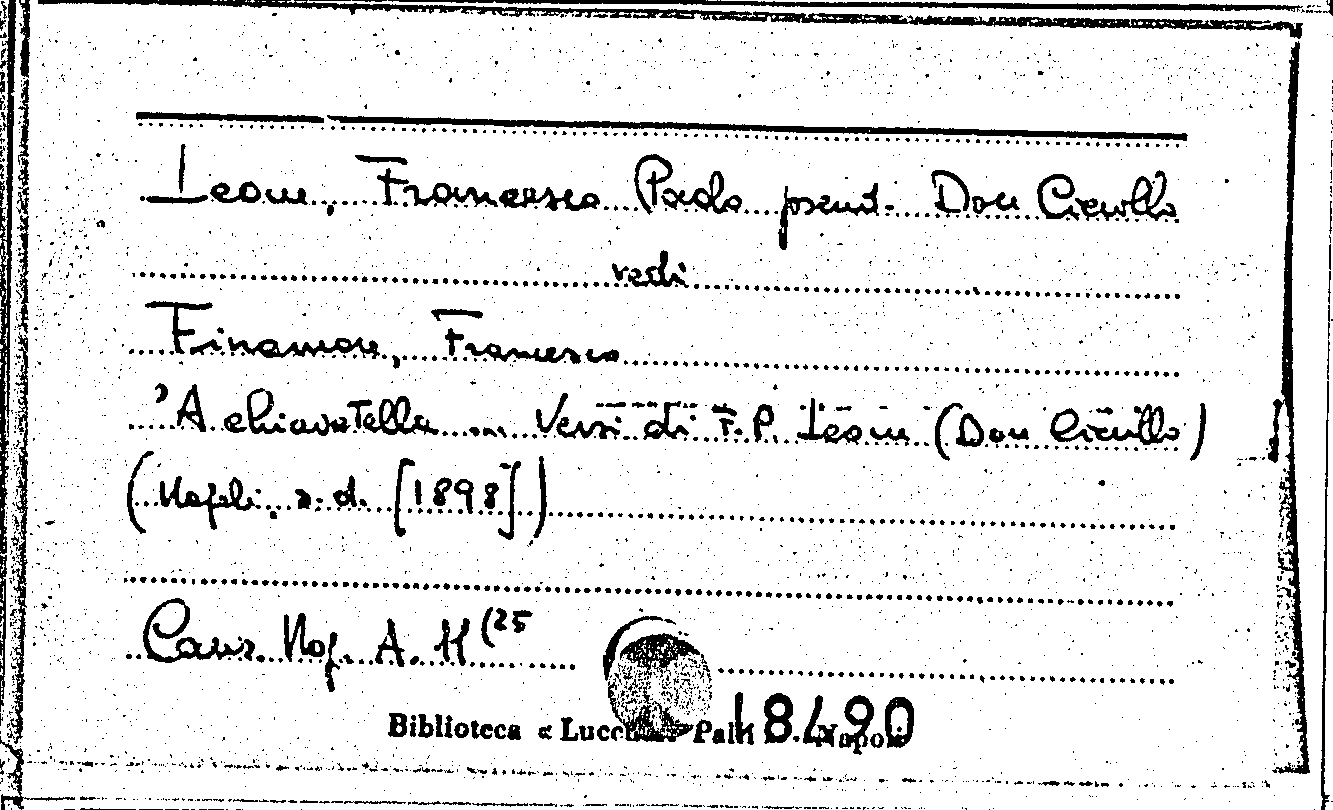 Leone, Francesco Paolo pseud. Don Ciccillo
vedi
Finamore, Francesco
'A chiavatella ... Versi di F. P. Leone (Don Ciccillo)
(Napoli, s. d. [1898])
Canz. Nap. A. 11 (25
Biblioteca « Lucchesi Palli » - Napoli
18490